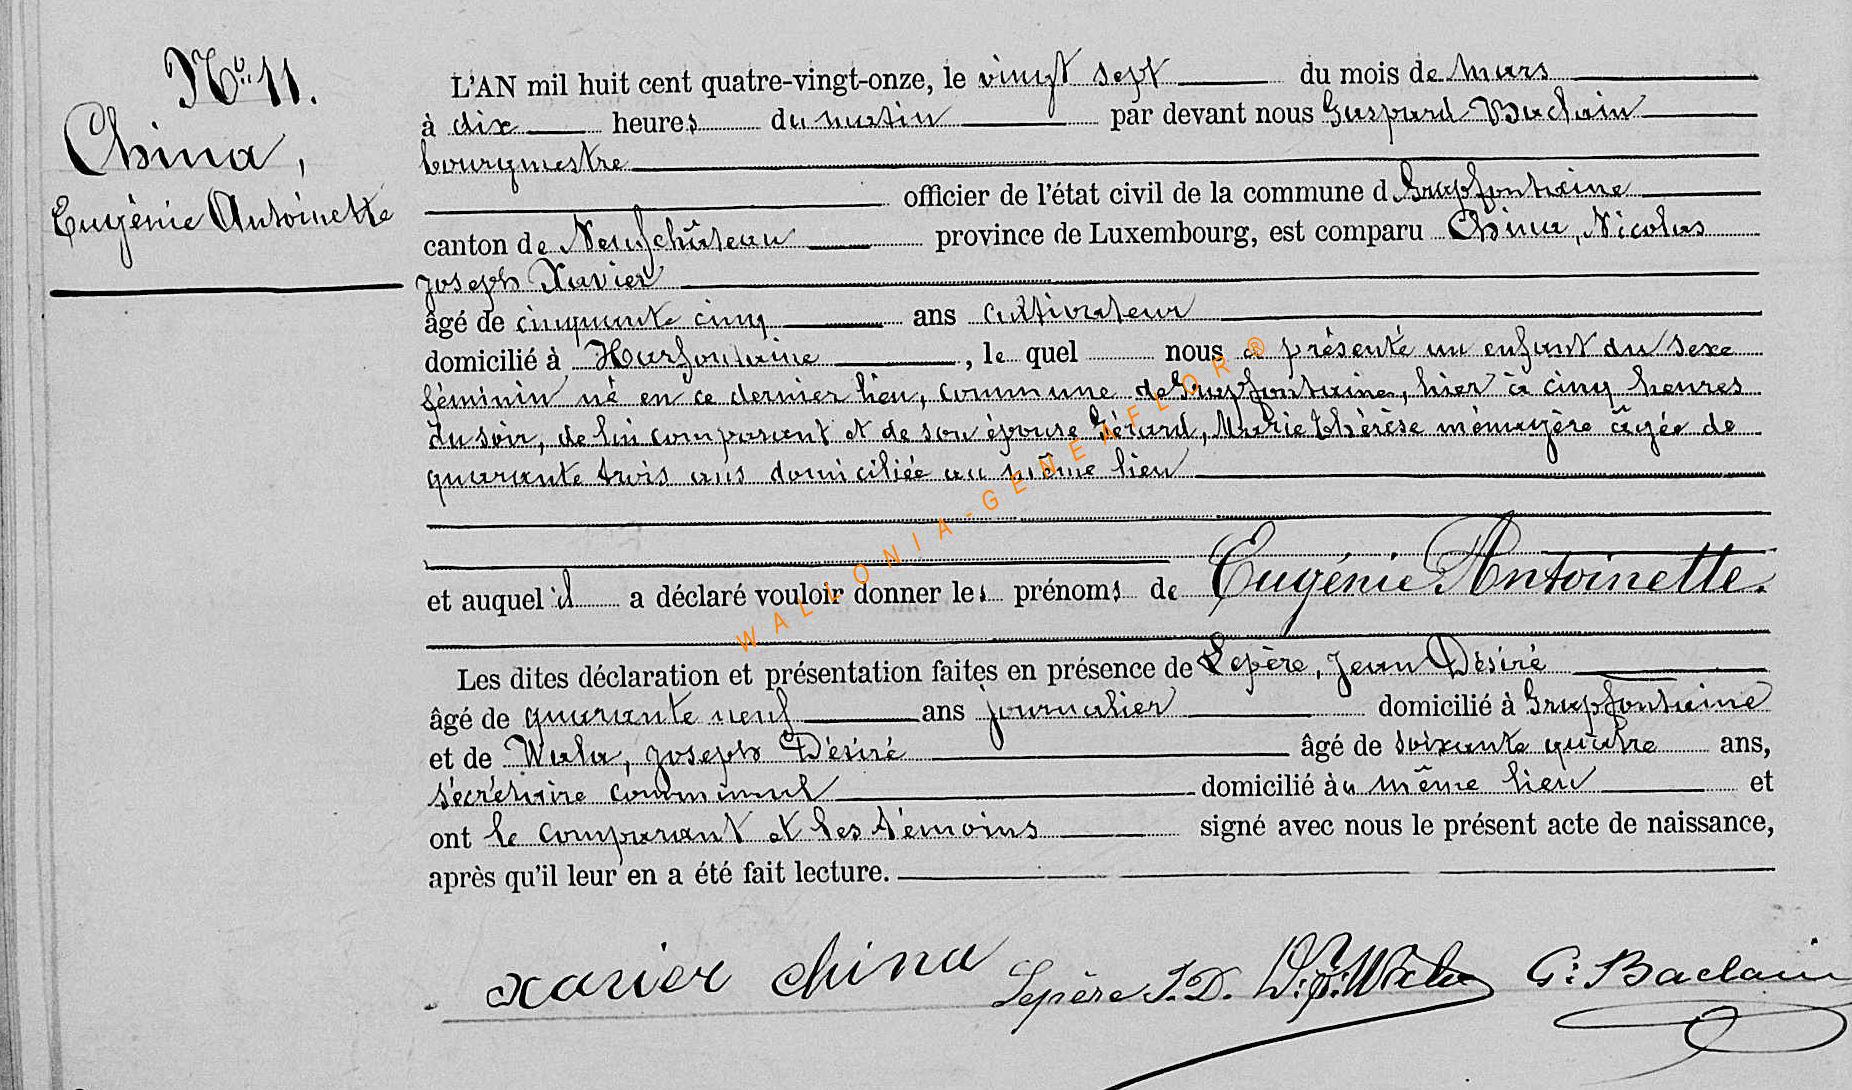 No 11.
China,
Eugénie Antoinette
L'AN mil huit cent quatre-vingt-onze, le vingt sept du mois de Mars
à dix heures du matin par devant nous Gaspard Baclain
bourgmestre
officier de l'état civil de la commune d Grapfontaine
canton de Neufchâteau province de Luxembourg, est comparu China, Nicolas
Joseph Xavier
âgé de cinquante cinq ans cultivateur
domicilié à Harfontaine, le quel nous a présenté un enfant du sexe
féminin né en ce dernier lieu, commune de Grapfontaine, hier à cinq heures
du soir, de lui comparant et de son épouse Gérard, Marie Thérèse ménagère âgée de
quarante trois ans domiciliée au même lieu
et auquel il a déclaré vouloir donner les prénoms de Eugénie Antoinette.
Les dites déclaration et présentation faites en présence de Lepère, Jean Désiré
âgé de quarante neuf ans journalier domicilié à Grapfontaine
et de Wala, Joseph Désiré âgé de soixante quatre ans,
sécrétaire communal domicilié au même lieu et
ont le comparant et les témoins signé avec nous le présent acte de naissance,
après qu'il leur en a été fait lecture.
xavier china Lepère J.D. G: Baclain
WALLONIA-GENEAFLOR®